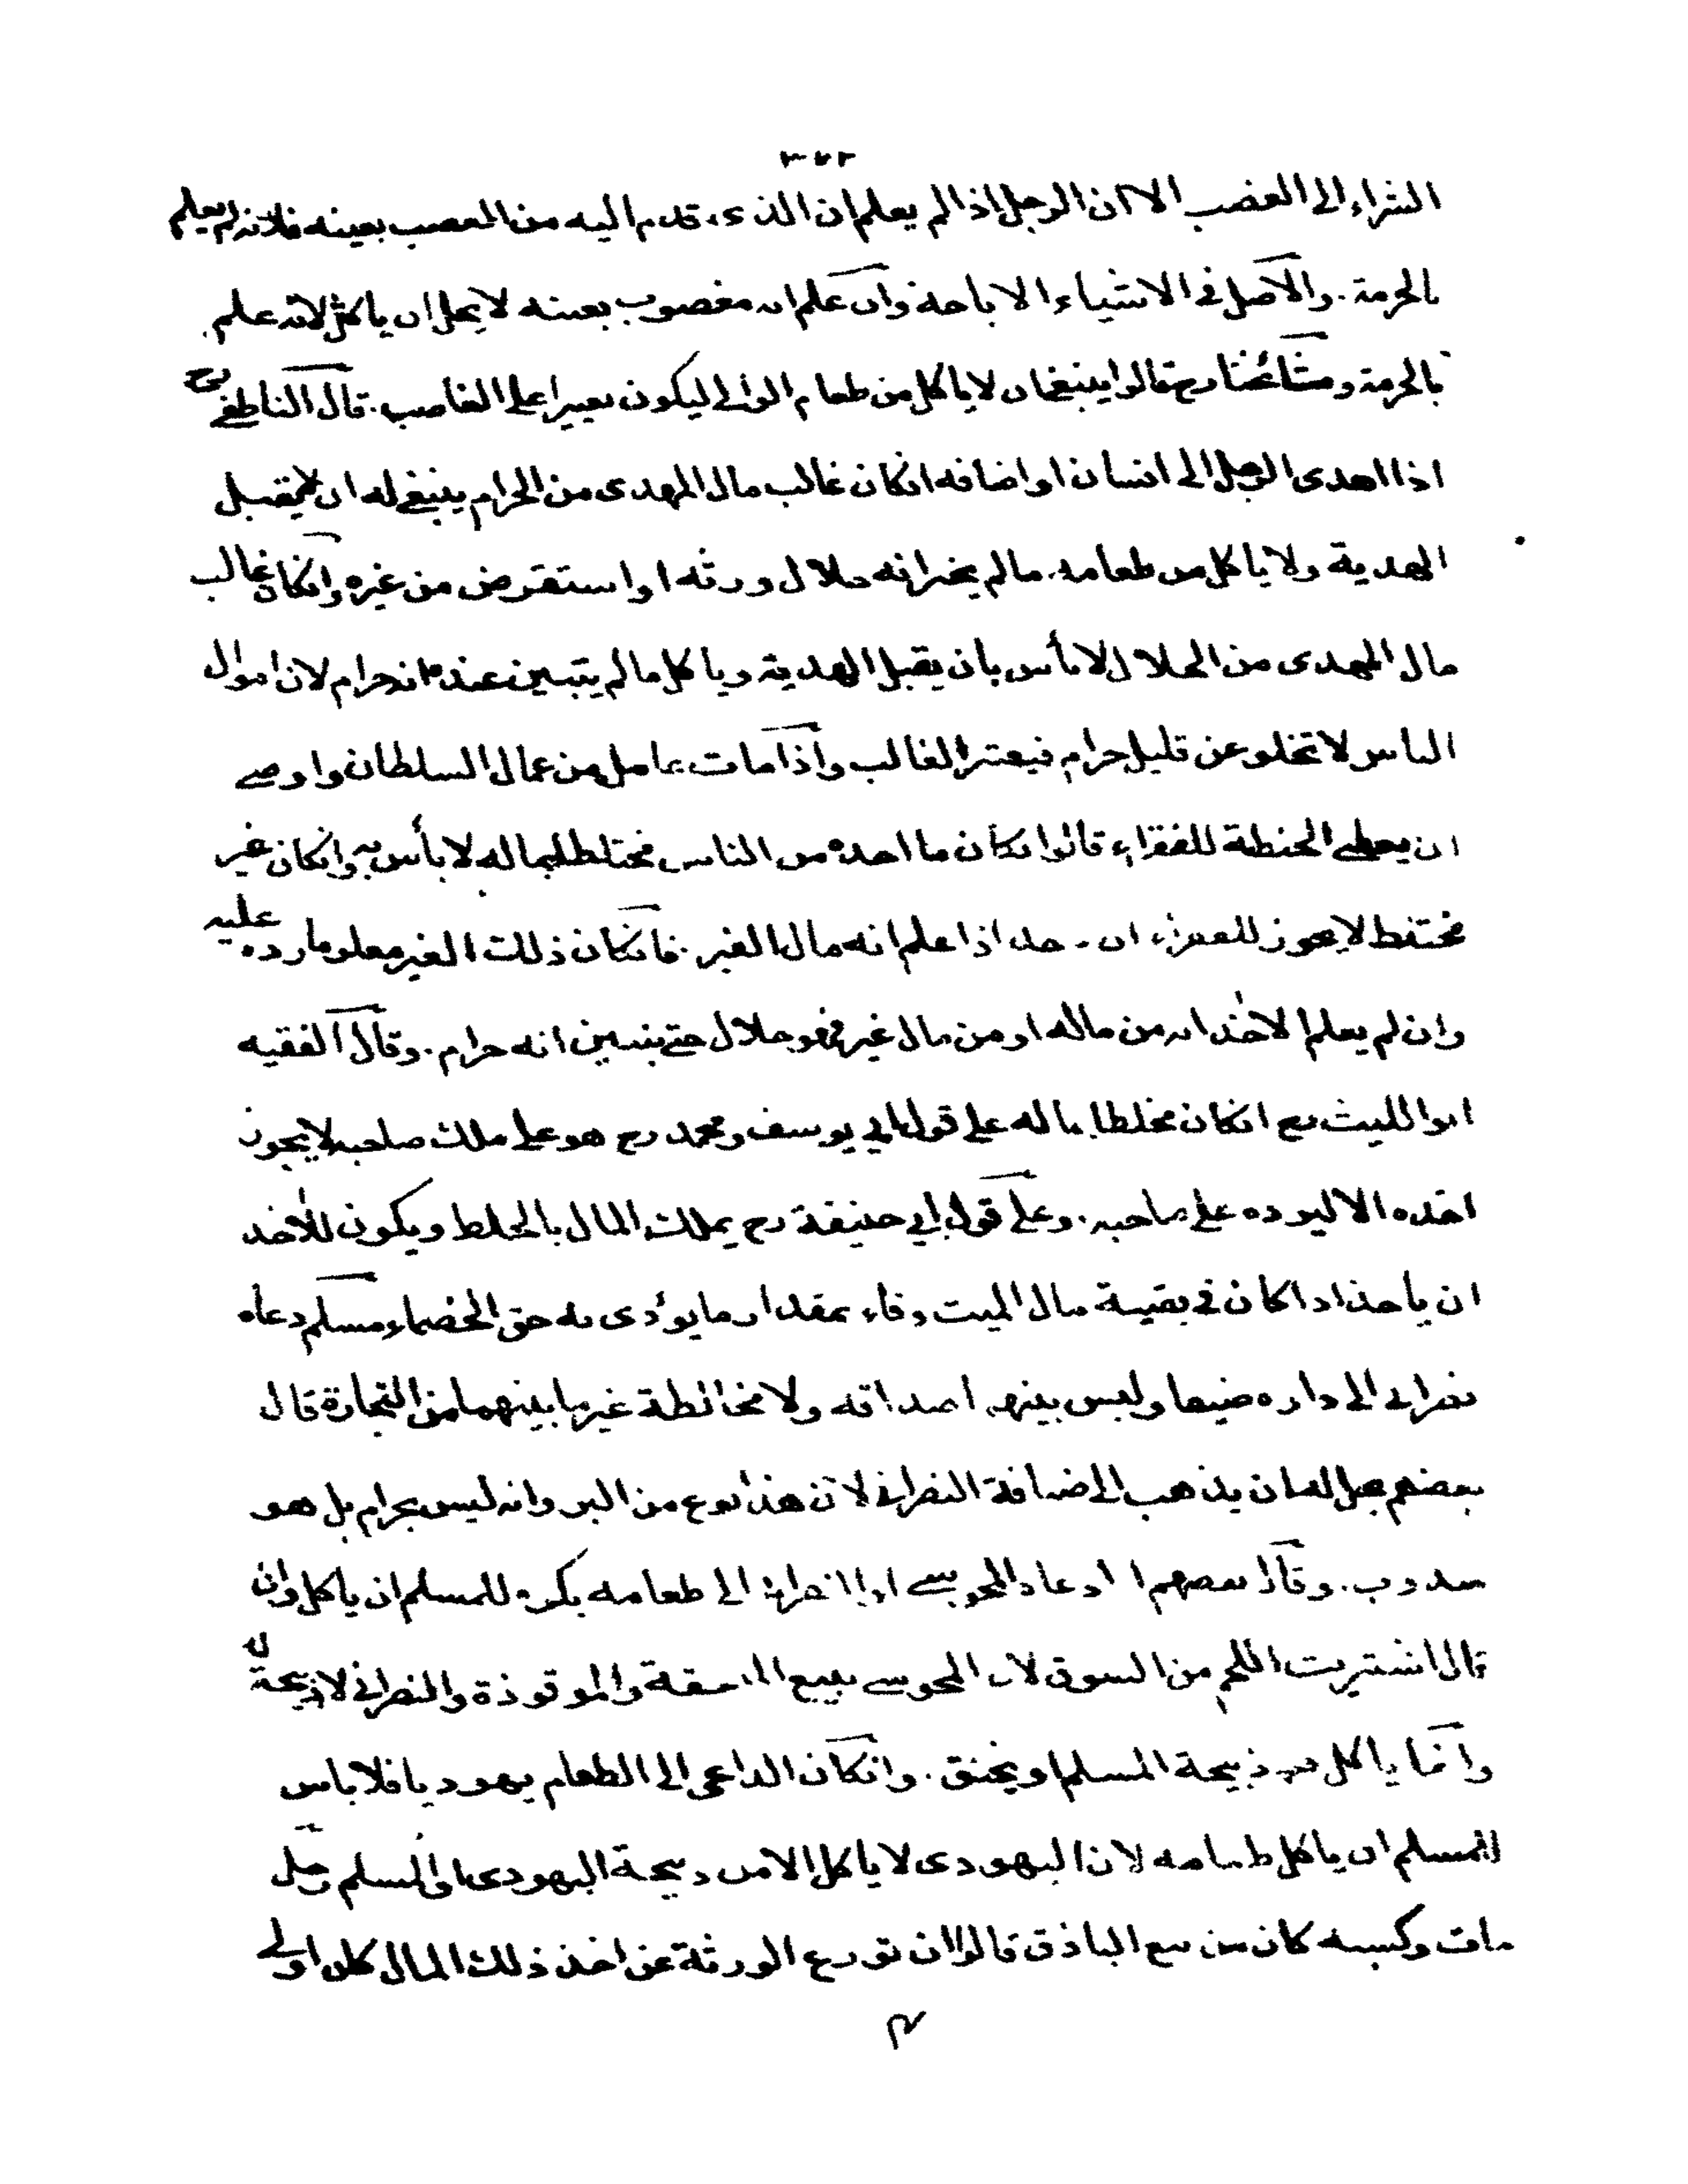 الشراء الى الغصب الا ان الرجل اذا لم يعلم ان الذى قدم اليه من المغصب بعينه فلانه لم يعلم
بالحرمة . والاصل فى الاشياء الاباحة وان علم انه مغصوب بعينه لا يحل ان ياكل لانه علم
بالحرمة ومشائخنا رح قالوا ينبغى ان لا ياكل من طعام الوالى ليكون تعييرا على الغاصب . قال الناطفى رح
اذا اهدى الرجل الى انسان او اضافه انكان غالب مال المهدى من الحرام ينبغى له ان لا يقبل
الهدية ولا ياكل من طعامه . مالم يخبر انه حلال ورثه او استقرض من غيره وانكان غالب
مال المهدى من الحلال لا بأس بان يقبل الهدية وياكل مالم يتبين عنده انه حرام لان اموال
الناس لا تخلو عن قليل حرام فيعتبر الغالب واذا مات عامل من عمال السلطان واوصى
ان يعطى الحنطة للفقراء قالوا انكان ما اخذه من الناس مختلطا بماله لا بأس به وانكان غير
مختلط لا يجوز للفقراء ان اذا علم انه مال الغير . فانكان ذلك الغير معلوما رده عليه
وان لم يعلم الاخذ انه من ماله او من مال غيره فهو حلال حتى يتبين انه حرام . وقال الفقيه
ابو الليث رح انكان مخلطا بماله على قول ابى يوسف ومحمد رح هو على ملك صاحبه لا يجوز
اخذه الا ليرده على صاحبه . وعلى قول ابى حنيفة رح يملك المال بالخلط ويكون للآخذ
ان ياخذ اذا كان فى بقية مال الميت وفاء بمقدار ما يؤدى به حق الخصماء مسلم دعاه
نصرانى الى داره ضيفا وليس بينهما صداقة ولا مخالطة غير ما بينهما من التجارة قال
بعضهم يحل له ان يذهب الى ضيافة النصرانى لان هذا نوع من البر وانه ليس بحرام بل هو
مندوب . وقال بعضهم اذا دعاه المجوسى او النصرانى الى طعامه يكره للمسلم ان ياكل وان
قال اشتريت اللحم من السوق لان المجوسى يبيع المنخنقة والموقوذة والنصرانى لا ذبيحة له
وانما ياكل من ذبيحة المسلم او يخنق . وانكان الداعى الى الطعام يهوديا فلا باس
للمسلم ان ياكل طعامه لان اليهودى لا ياكل الا من ذبيحة اليهودى او المسلم رجل
مات وكسبه كان من بيع الباذق قالوا ان تورع الورثة عن اخذ ذلك المال كان اولى